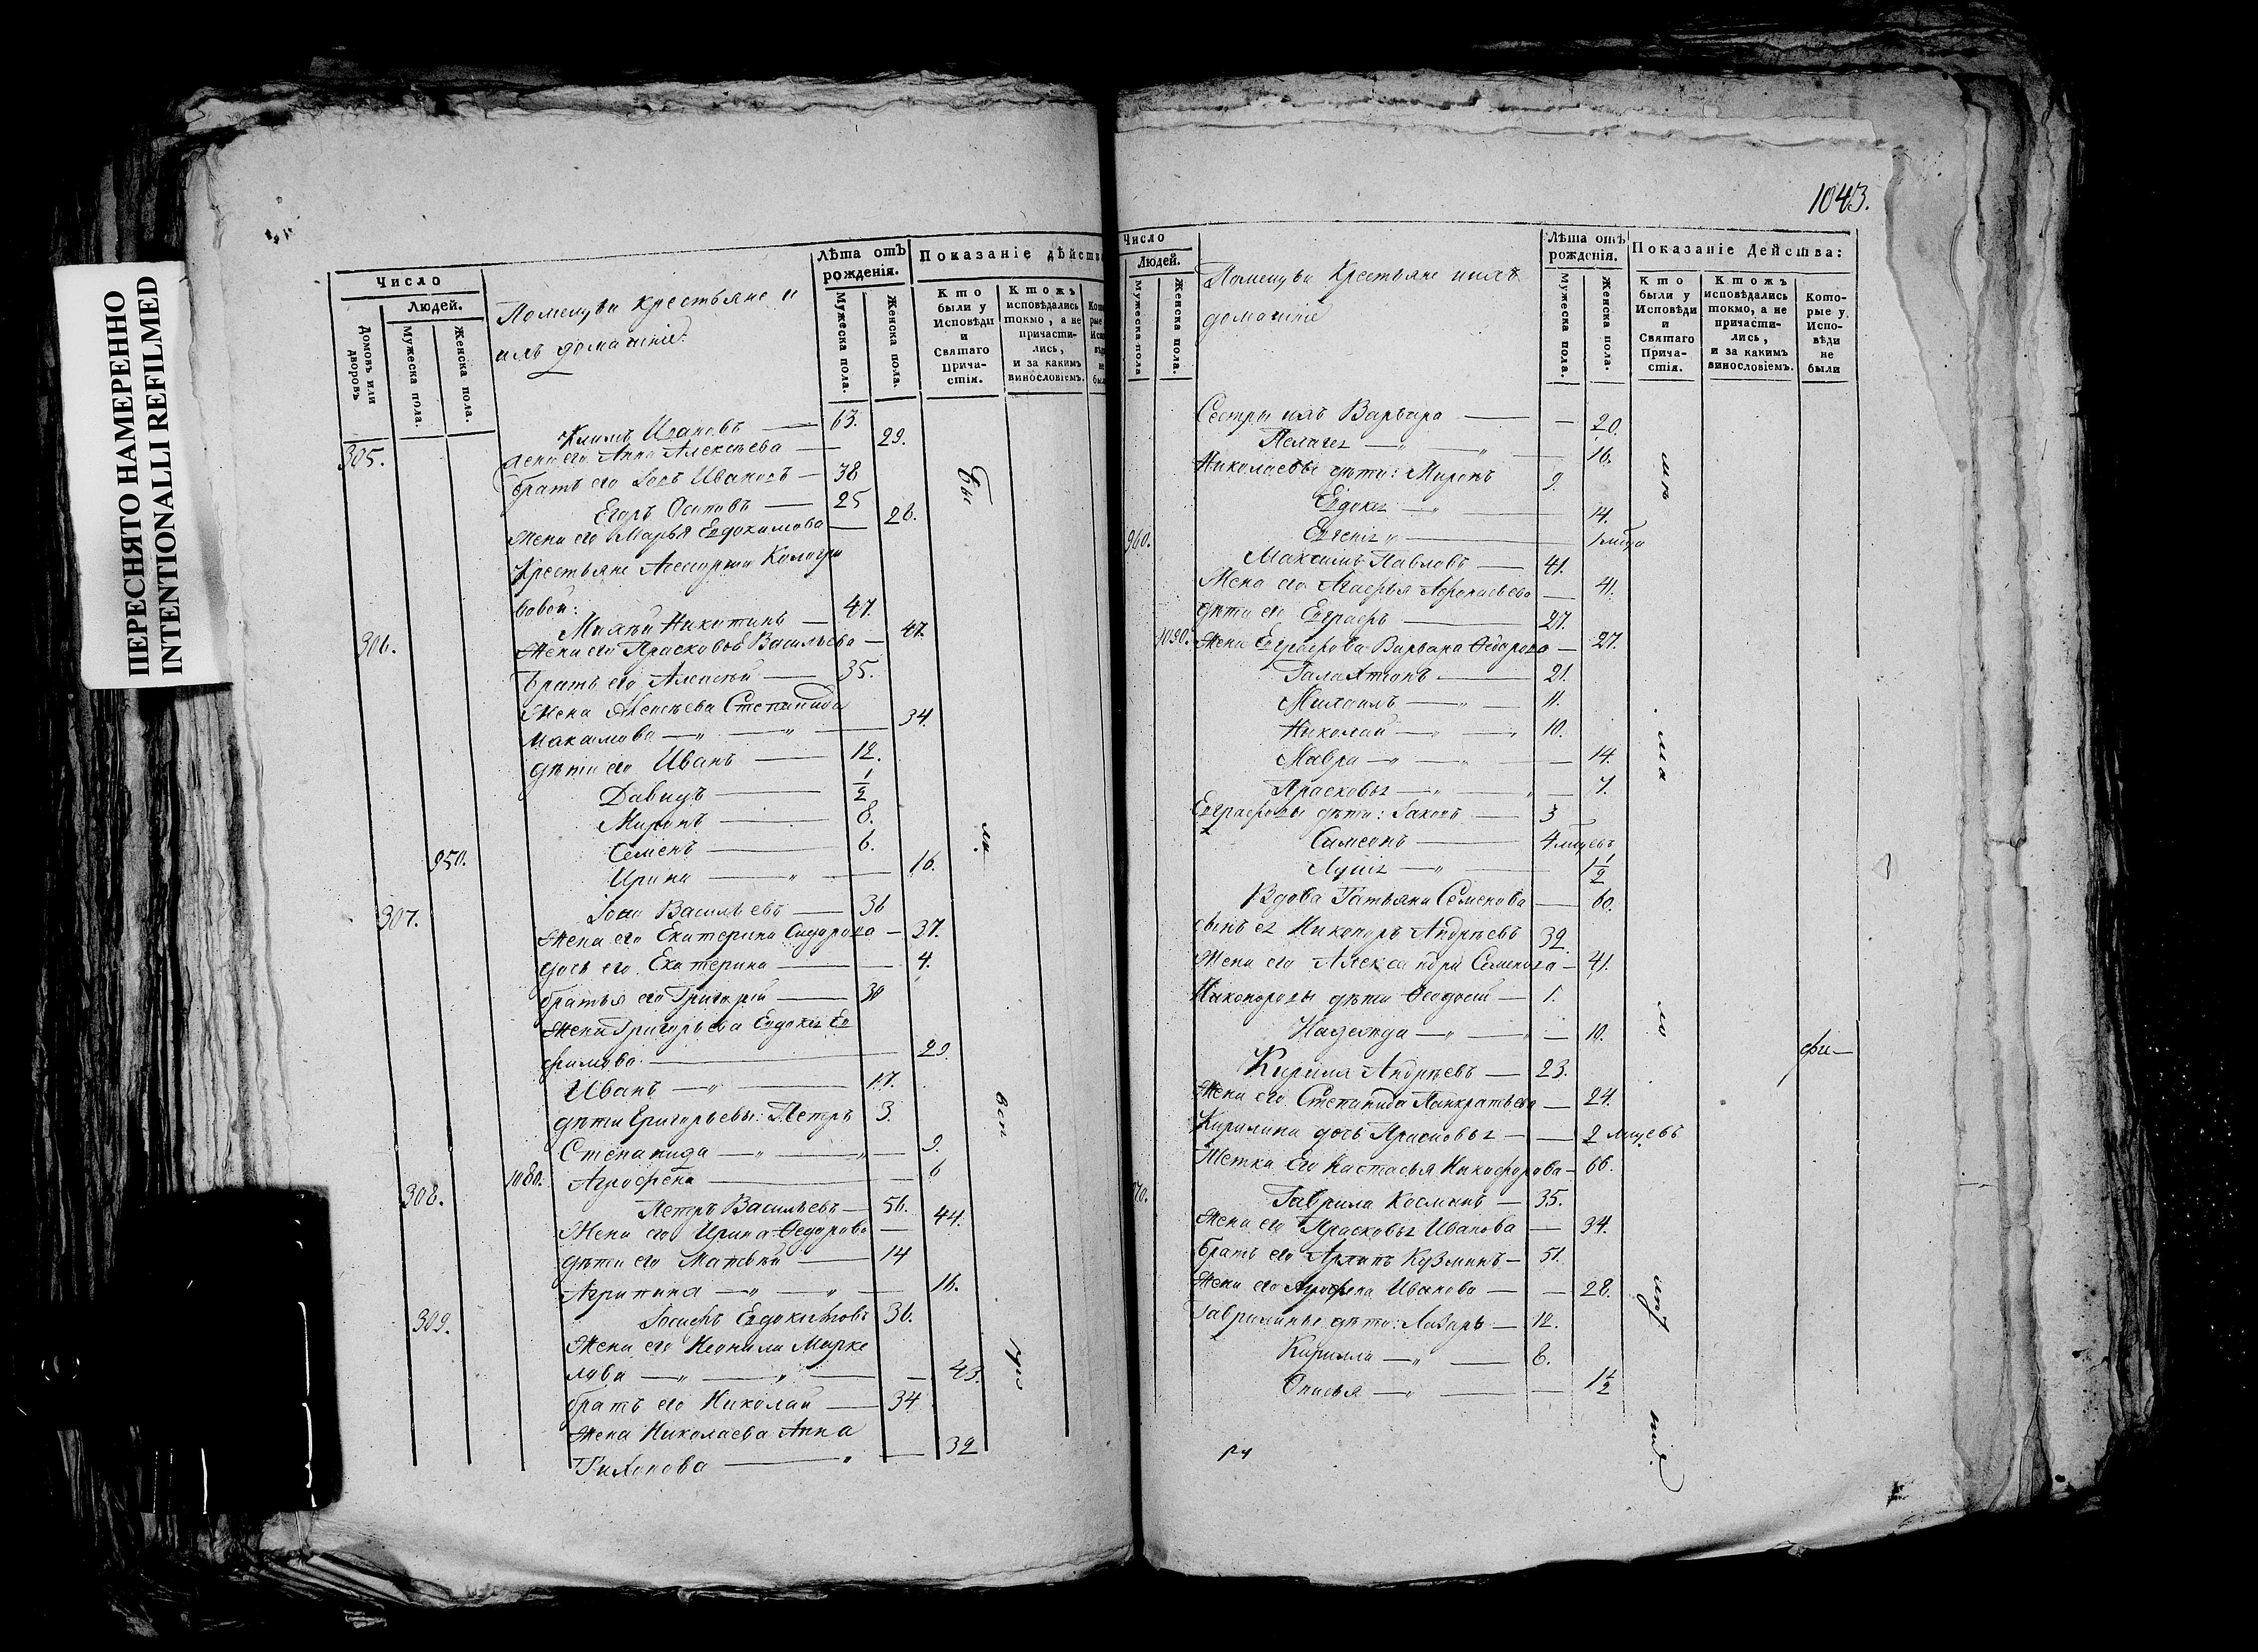 ПЕРЕСНЯТО НАМЕРЕННО
INTENTIONALLI REFILMED
Число
Людей.
Домовъ или дворовъ
Мужеска пола.
Женска пола.
Помещичьи крестьяне и
ихъ домашніе.
Лѣта отъ рожденія.
Мужеска пола.
Женска пола.
Показаніе дѣйства
Кто были у Исповѣди и Святаго Причастія.
Ктожъ исповѣдались токмо, а не причастились, и за какимъ винословіемъ.
305.
Климъ Ивановъ — 63.
жена его Анна Алексѣева — 29.
братъ его Іовъ Ивановъ — 38
Егоръ Осиповъ — 25
Жена его Марья Евдокимова — 26.
Крестьяне Асессорши Кологри
вовой:
306. Михѣй Никитинъ — 47.
Жена его Прасковья Васильева — 47.
братъ его Алексѣй — 35.
Жена Алексѣева Степанида
Максимова — 34.
дѣти его Иванъ — 12.
Давидъ — 1/2
Миронъ — 8.
Семенъ — 6.
950. Ирина — 16.
307. Іона Васильевъ — 36
Жена его Екатерина Сидорова — 37.
дочь его Екатерина — 4.
братья его Григорій — 30
Жена Григорьева Евдокія Ев
фимова — 29.
Иванъ — 17.
дѣти Григорьевы: Петръ 3.
Степанида — 9.
1080. Агрофена — 6
308. Петръ Васильевъ — 56.
Жена его Ирина Ѳедорова — 44.
дѣти его Матвей — 14
Агрипина — 16.
309. Іосифъ Евдокимовъ 36.
Жена его Неонила Марке
лова — 43.
братъ его Николай — 34
Жена Николаева Анна
Тихонова — 32
1043.
Число
Людей.
Мужеска пола
Женска пола.
Помещичьи Крестьяне и ихъ
домашніе
Лѣта отъ рожденія.
Мужеска пола.
Женска пола.
Показаніе Действа:
Кто были у Исповѣди и Святаго Причастія.
Ктожъ исповѣдались токмо, а не причастились, и за какимъ винословіемъ.
Которые у Исповѣди не были
Сестры ихъ Варвара — 20.
Пелагея — 16.
Николаевы дѣти: Миронъ 9.
Евдокія — 14.
960.
Максимъ Павловъ — 41.
Жена его Агафья Афонасьева — 41.
дѣти его Евграфъ — 27.
1090. Жена Евграфова Варвара Ѳедорова — 27.
Галактіонъ — 21.
Михаилъ — 11.
Николай — 10.
Мавра — 14.
Прасковья — 7.
Евграфовы дѣти: Іаковъ — 3
Симеонъ — 4 мѣсецъ
1 1/2
Вдова Татьяна Семенова — 60.
сынъ ея Никаноръ Андреевъ 39
Жена его Александра Семенова — 41.
Никаноровы дѣти Ѳеодосій — 1.
Надежда — 10.
Кирила Андреевъ — 23.
Жена его Степанида Панкратьева — 24.
Кирилина дочь Прасковья — 2 мѣсецъ
Тетка его Настасья Никифорова — 66.
Гаврила Косминъ — 35.
Жена его Прасковья Иванова — 34.
братъ его Архипъ Кузминъ — 51.
Жена его Агрофена Иванова — 28.
Гаврилины дѣти: Лазарь — 12.
Кирилла — 8.
Анисья — 1 1/2